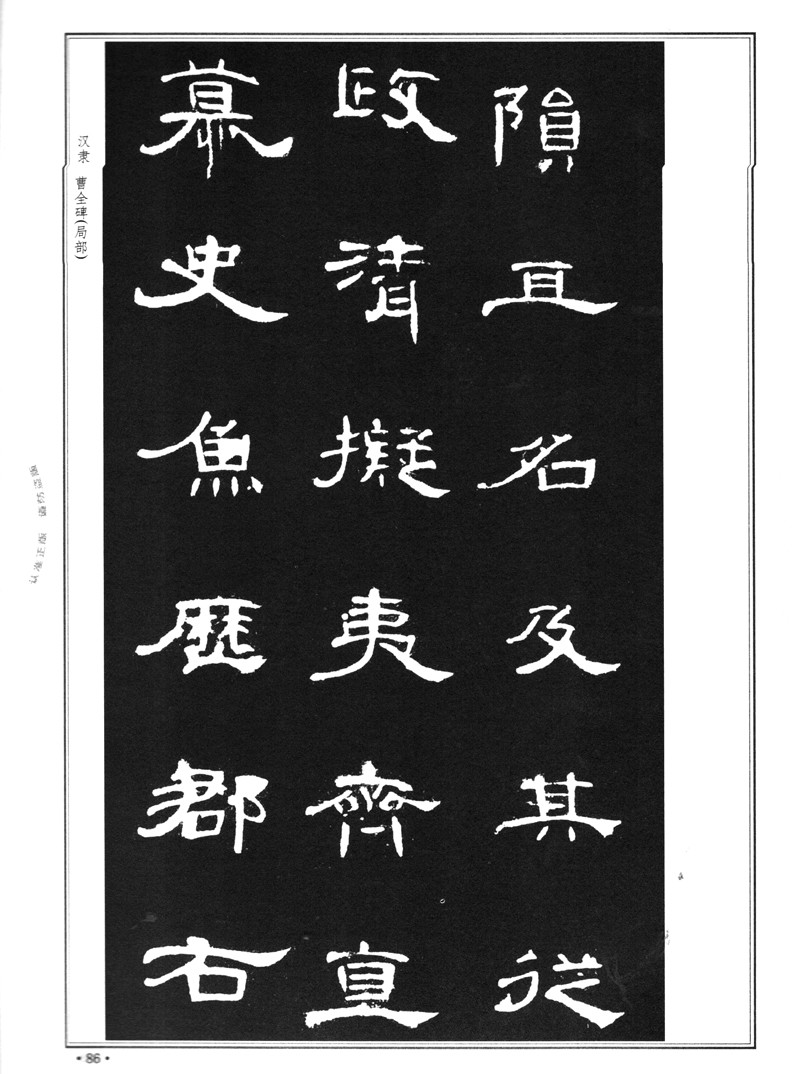 隕且名及其從
政清擬夷齊直
慕史魚歷郡右
汉隶 曹全碑(局部)
·86·